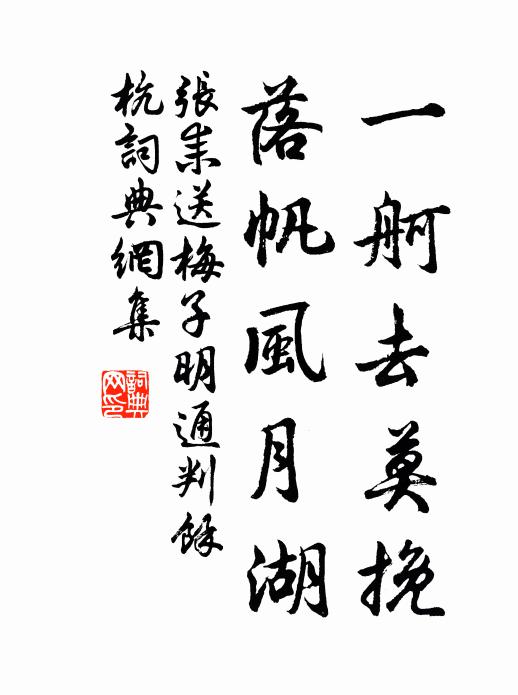 一舸去莫挽
落帆風月湖
張耒送梅子明通判餘
杭詞典網集
詞典
网印